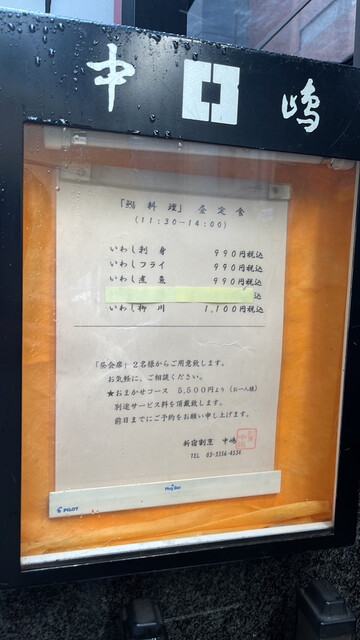 中 嶋
「鰯 料 理」 昼 定 食
(11:30-14:00)
いわし刺 身 990円税込
いわしフライ 990円税込
いわし煮 魚 990円税込
込
いわし柳 川 1,100円税込
「昼会席」2名様からご用意致します。
お気軽に、ご相談ください。
★おまかせコース 5,500円より (お一人様)
別途サービス料を頂戴致します。
前日までにご予約をお願い申し上げます。
新宿割烹 中嶋
TEL 03-3356-4534
PILOT